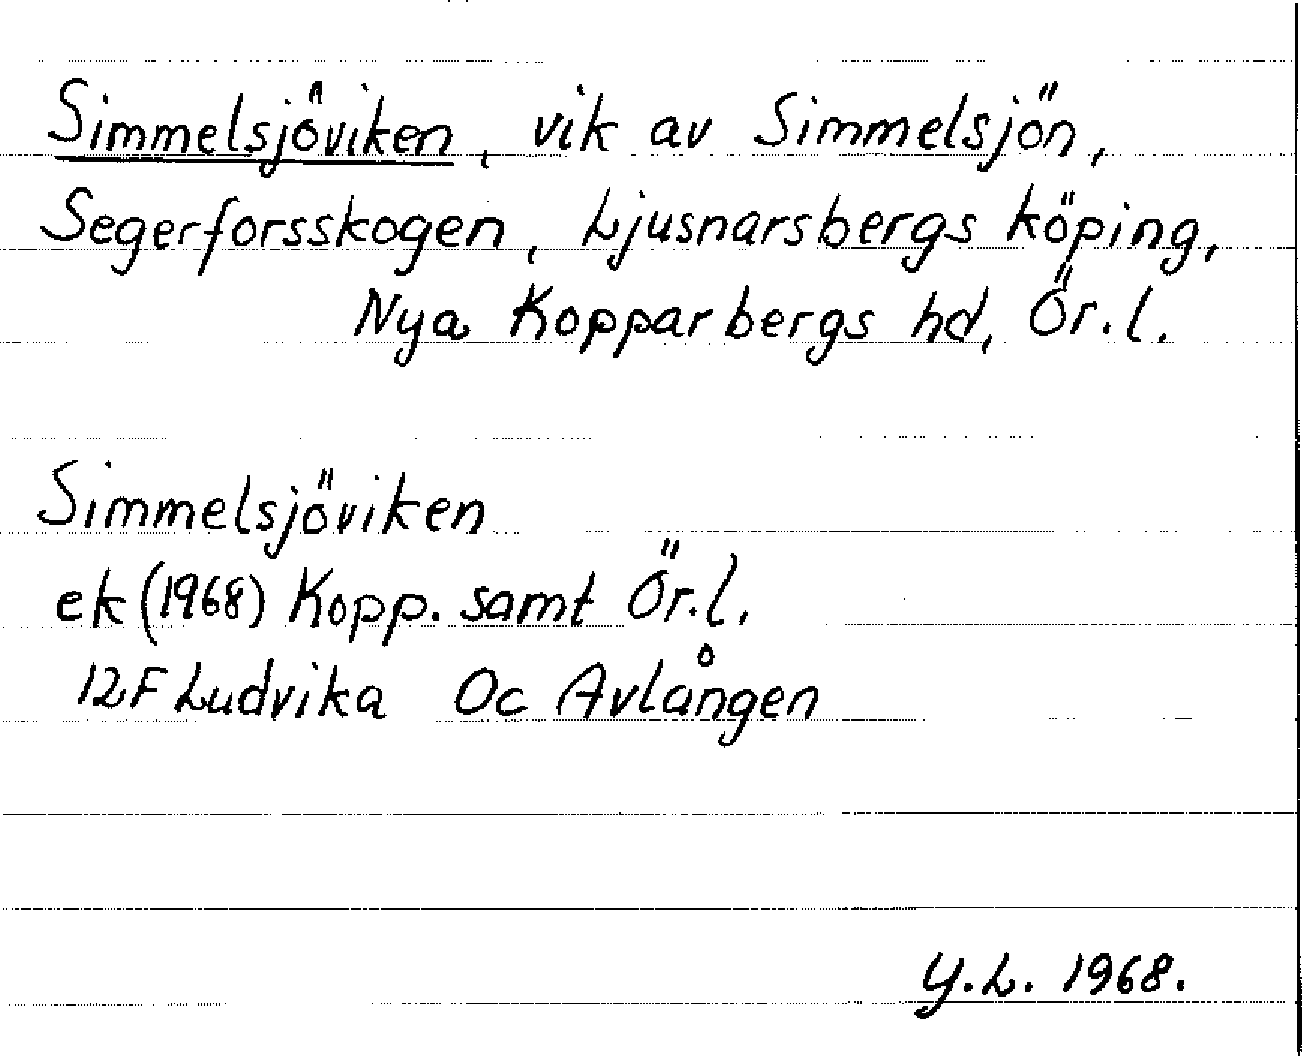 Simmelsjöviken, vik av Simmelsjön,
Segerforsskogen, Ljusnarsbergs köping,
Nya Kopparbergs hd, Ör.l.
Simmelsjöviken
ek (1968) Kopp. samt Ör.l.
12F Ludvika Oc Avlången
Y.L. 1968.